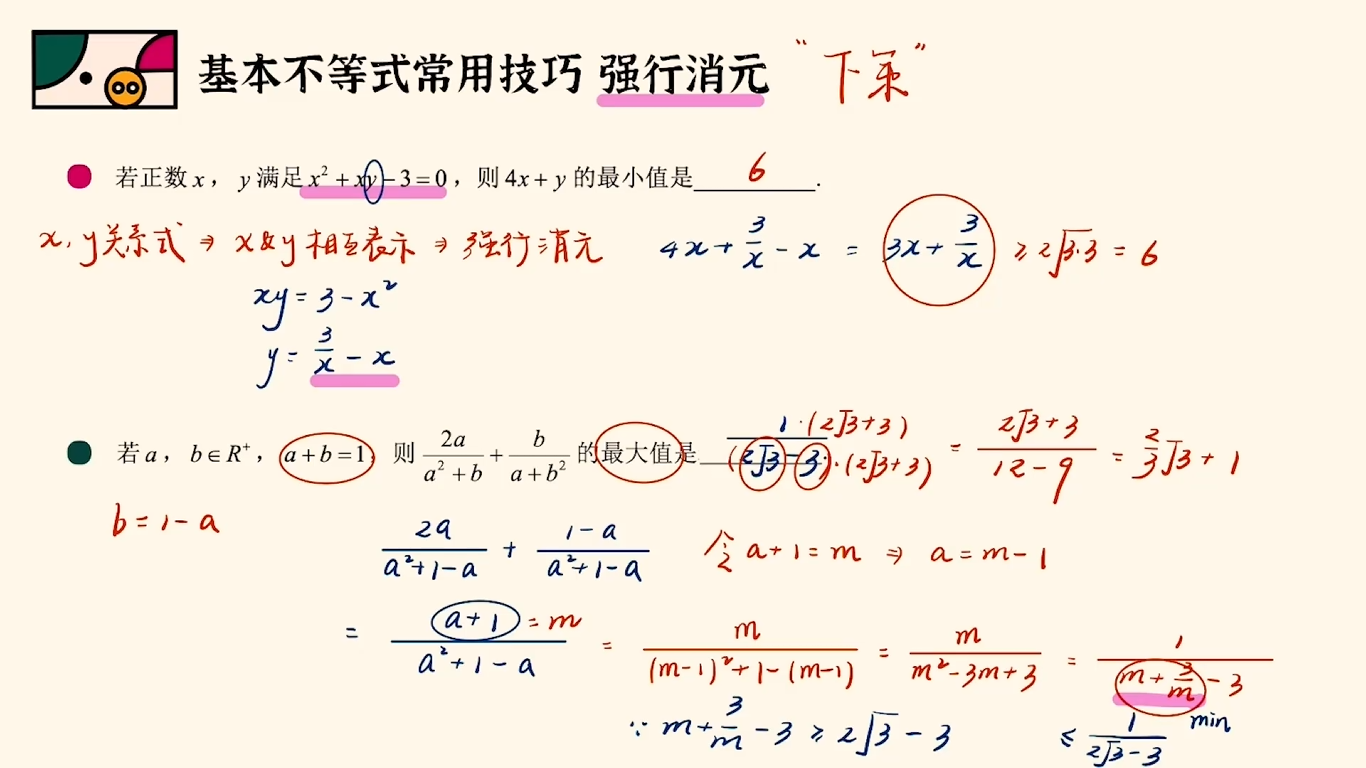 基本不等式常用技巧 强行消元 “下策”
若正数 x，y 满足 x² + xy − 3 = 0，则 4x + y 的最小值是 6 .
x, y关系式 ⇒ x & y 相互表示 ⇒ 强行消元
4x + 3/x − x = 3x + 3/x ≥ 2√(3·3) = 6
xy = 3 − x²
y = 3/x − x
若 a，b ∈ R⁺，a + b = 1，则 2a/(a² + b) + b/(a + b²) 的最大值是
1·(2√3+3)/((2√3−3)·(2√3+3)) = (2√3+3)/(12−9) = 2/3 √3 + 1
b = 1 − a
2a/(a²+1−a) + (1−a)/(a²+1−a)
令 a+1 = m ⇒ a = m−1
= (a+1)/(a²+1−a) = m/((m−1)²+1−(m−1)) = m/(m²−3m+3) = 1/(m+3/m−3)
a+1 = m
∵ m + 3/m − 3 ≥ 2√3 − 3
≤ 1/(2√3−3)
min